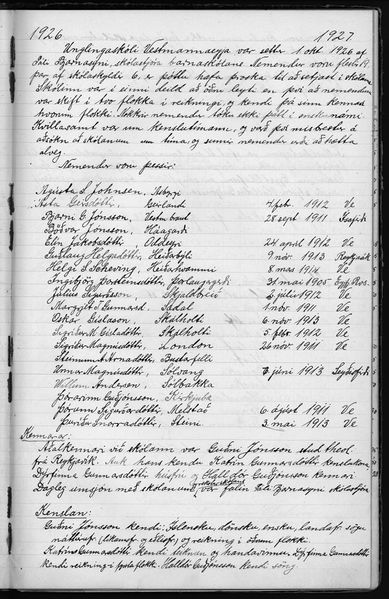 1926 1927
Unglingaskóli Vestmannaeyja var settur 1. okt. 1926 af
Páli Bjarnasyni, skólastjóra barnaskólans. Nemendur voru flestir 19
þar af skólaskyldir 6, er þóttu hafa þroska til að setjast í skólann.
Skólinn var í einni deild að öðru leyti en því að nemendum
var skift í tvo flokka í reikningi, og kendi sinn kennari
hvorum flokki. Nokkrir nemendur tóku ekki þátt í enskunámi.
Kvillasamt var um kenslutímann, og varð því misbrestur á
aðsókn að skólanum um tíma, og sumir nemendur urðu að hætta
alveg.
Nemendur voru þessir:
Ágústa S. Johnsen,
Ásta Geirsdóttir, Geirlandi 7 febr. 1912 Ve
Bjarni G. Jónsson, Vestra 28 sept 1911
Böðvar Jónsson, Háagarði
Elín Jakobsdóttir 24 apríl 1912 Ve
Guðlaug Helgadóttir, Heiðarbýli 9 nóv 1913 Reykjavík
Helgi S. Scheving, Heiðarhvammi 8 mas 1914 Ve
Ingibjörg Þorsteinsdóttir, 31 maí 1905
Júlíus Skjaldbreið júlí 1912 Ve
Margrét Gunnarsd. Sædal 1 nóv 1911 Ve
Óskar Gíslason, Skálholti 6 nóv 1913 Ve
Sigríður M. Gísladóttir, Skálholti 5 febr. 1912 Ve
Sigríður Magnúsdóttir, London 26 nóv 1911 Ve
Steinunn Árnadóttir, Búastaðir
Unnur Magnúsdóttir, Sólvang 7 júní 1913 Seyðisfirði
Willum Andersen, Sólbakka
Þórarinn Guðjónsson, Kirkjubæ
Þórunn Sigurðardóttir, Melstað 6 ágúst 1911 Ve
Þuríður Snorradóttir, Steini 3 maí 1913 Ve
Kennarar:
Aðalkennari við skólann var Guðni Jónsson stud theol
frá Reykjavík. Auk hans kendu Katrín Gunnarsdóttir kenslukona
Dýrfinna Gunnarsdóttir húsfrú og Halldór Guðjónsson kennari
Dagleg umsjón með skólanum var falin Páli Bjarnasyni skólastjóra
Kenslan:
Guðni Jónsson kendi: Íslensku, dönsku, ensku, landafr. sögu
náttúrufr. (líkamsfr. og eðlisfr.) og reikning í öðrum flokki.
Katrín Gunnarsdóttir kendi teiknun og handavinnu Dýrfinna Gunnarsdóttir
kendi reikning í flokk. Halldór Guðjónsson kendi söng